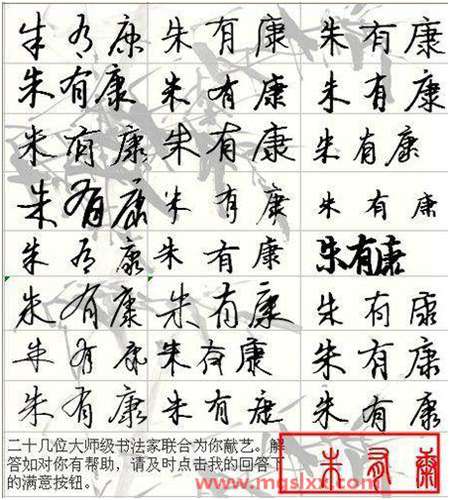 朱有康 朱有康 朱有康
朱有康 朱有康 朱有康
朱有康 朱有康 朱有康
朱有康 朱有康 朱有康
朱有康 朱有康 朱有康
朱有康 朱有康 朱有康
朱有康 朱有康 朱有康
朱有康 朱有康 朱有康
二十几位大师级书法家联合为你献艺。解
答如对你有帮助，请及时点击我的回答下
的满意按钮。
朱有康
www.mgslxx.com